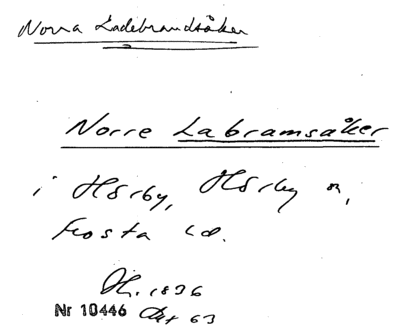 Norra Ladebrandsåker
Norre Labramsåker
i Hörby, Hörby sn,
Frosta hd.
Dh. 1836
Nr 10446 Akt 63